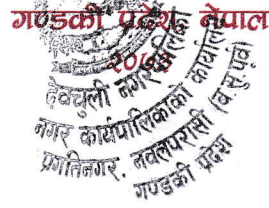 गण्डकी प्रदेश, नेपाल
२०७३
देवचुली नगरपालिका
नगर कार्यपालिकाको कार्यालय
प्रगतिनगर, नवलपरासी (ब.सु.पूर्व)
गण्डकी प्रदेश